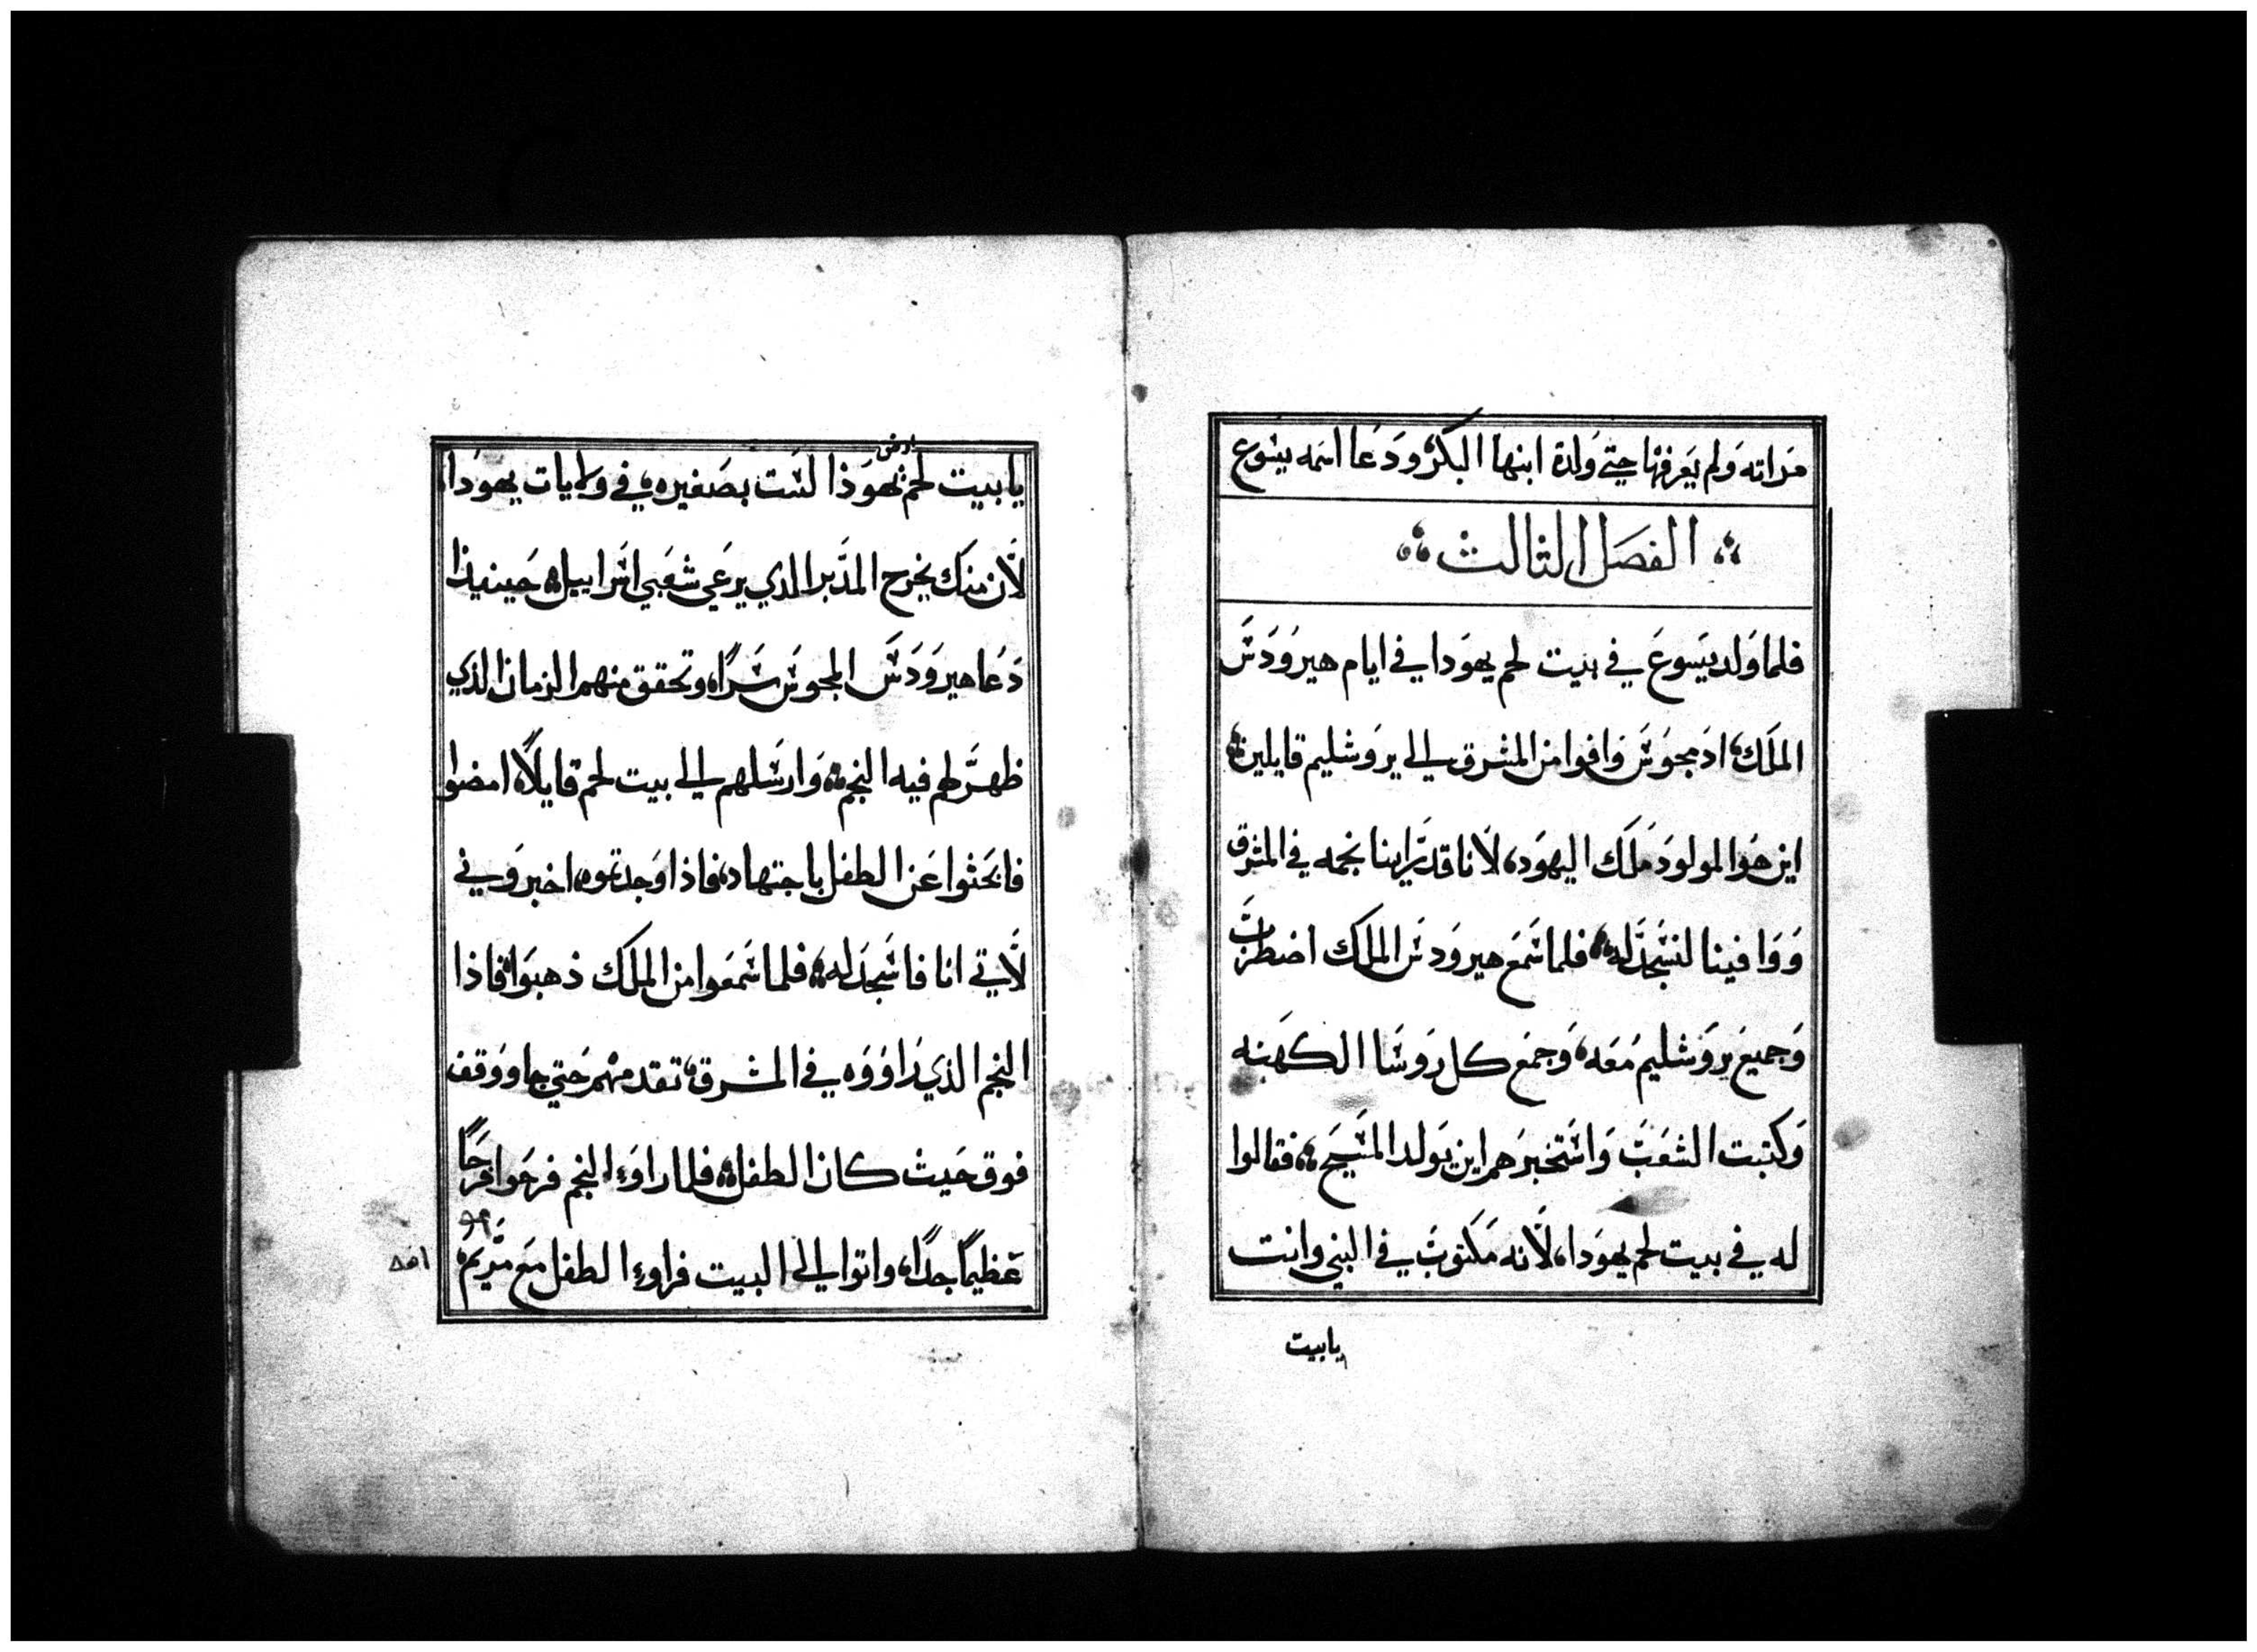 مراته ولم يعرفها حتي ولدة ابنها البكر ودعا اسمه يسوع
الفصل الثالث
فلما ولد يسوع في بيت لحم يهودا في ايام هيرودس
الملك اد مجوس وافوا من المشرق الي يروشليم قايلين
اين هوا المولود ملك اليهود لانا قد راينا نجمه في المشرق
ووافينا لنسجد له فلما سمع هيرودس الملك اضطرب
وجميع يروشليم معه وجمع كل روسا الكهنه
وكتبت الشعب واستخبرهم اين يولد المسيح فقالوا
له في بيت لحم يهودا لانه مكتوب في النبي وانت
يابيت
ارض
يا بيت لحم يهوذا لست بصغيره في ولايات يهودا
لان منك يخرج المدبر الذي يرعي شعبي اسراييل حينيذا
دعا هيرودس المجوس سرا وتحقق منهم الزمان الذي
ظهر لهم فيه النجم وارسلهم الي بيت لحم قايلا امضوا
فابحثوا عن الطفل باجتهاد فاذا وجدتموه اخبروني
لاتي انا فاسجد له فلما سمعوا من الملك ذهبوا فاذا
النجم الذي راووه في المشرق تقدمهم حتي جا ووقف
فوق حيث كان الطفل فلما راوا النجم فرحوا فرحا
عظيما جدا واتوا الي البيت فراوا الطفل مع مريم